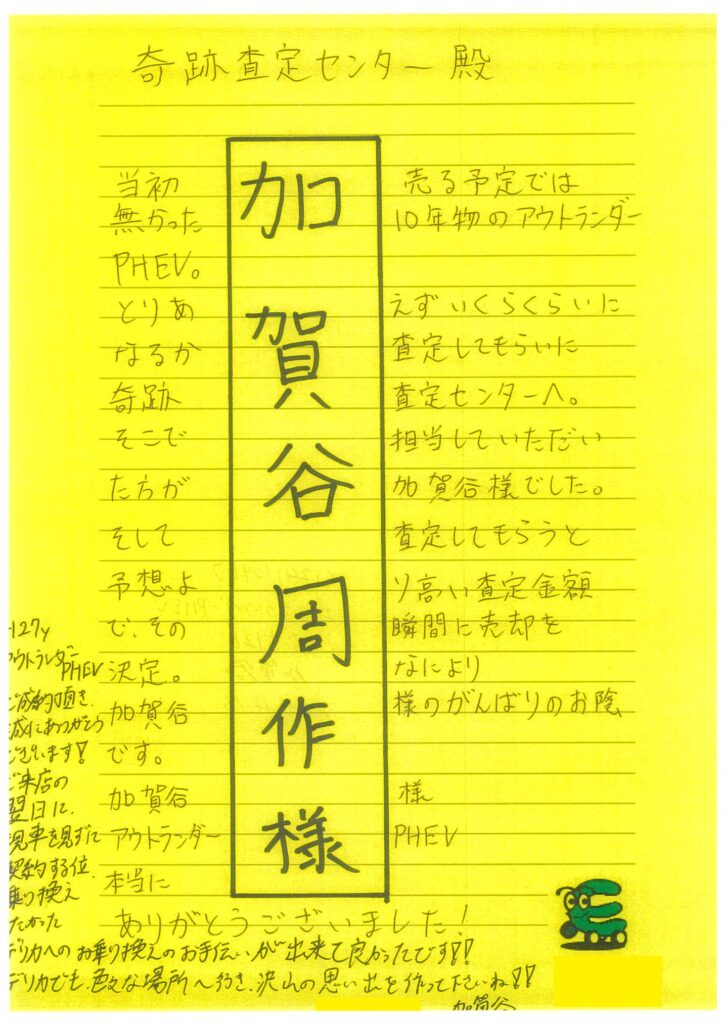 奇跡査定センター殿
加賀谷周作様
当初 売る予定では
無かった 10年物のアウトランダー
PHEV。
とりあ えずいくらくらいに
なるか 査定してもらいに
奇跡 査定センターへ。
そこで 担当していただい
た方が 加賀谷様でした。
そして 査定してもらうと
予想よ り高い査定金額
で、その 瞬間に売却を
決定。 なにより
加賀谷 様のがんばりのお陰
です。
加賀谷 様
アウトランダー PHEV
本当に
ありがとうございました!
H27y
アウトランダー
PHEV
ご成約頂き、
誠にありがとう
ございます!
ご来店の
翌日に、
現車を見ずに
契約する位、
乗り換え
たかった
デリカへのお乗り換えのお手伝いが出来て良かったです!!
デリカでも、色々な場所へ行き、沢山の思い出を作って下さいね!!
加賀谷